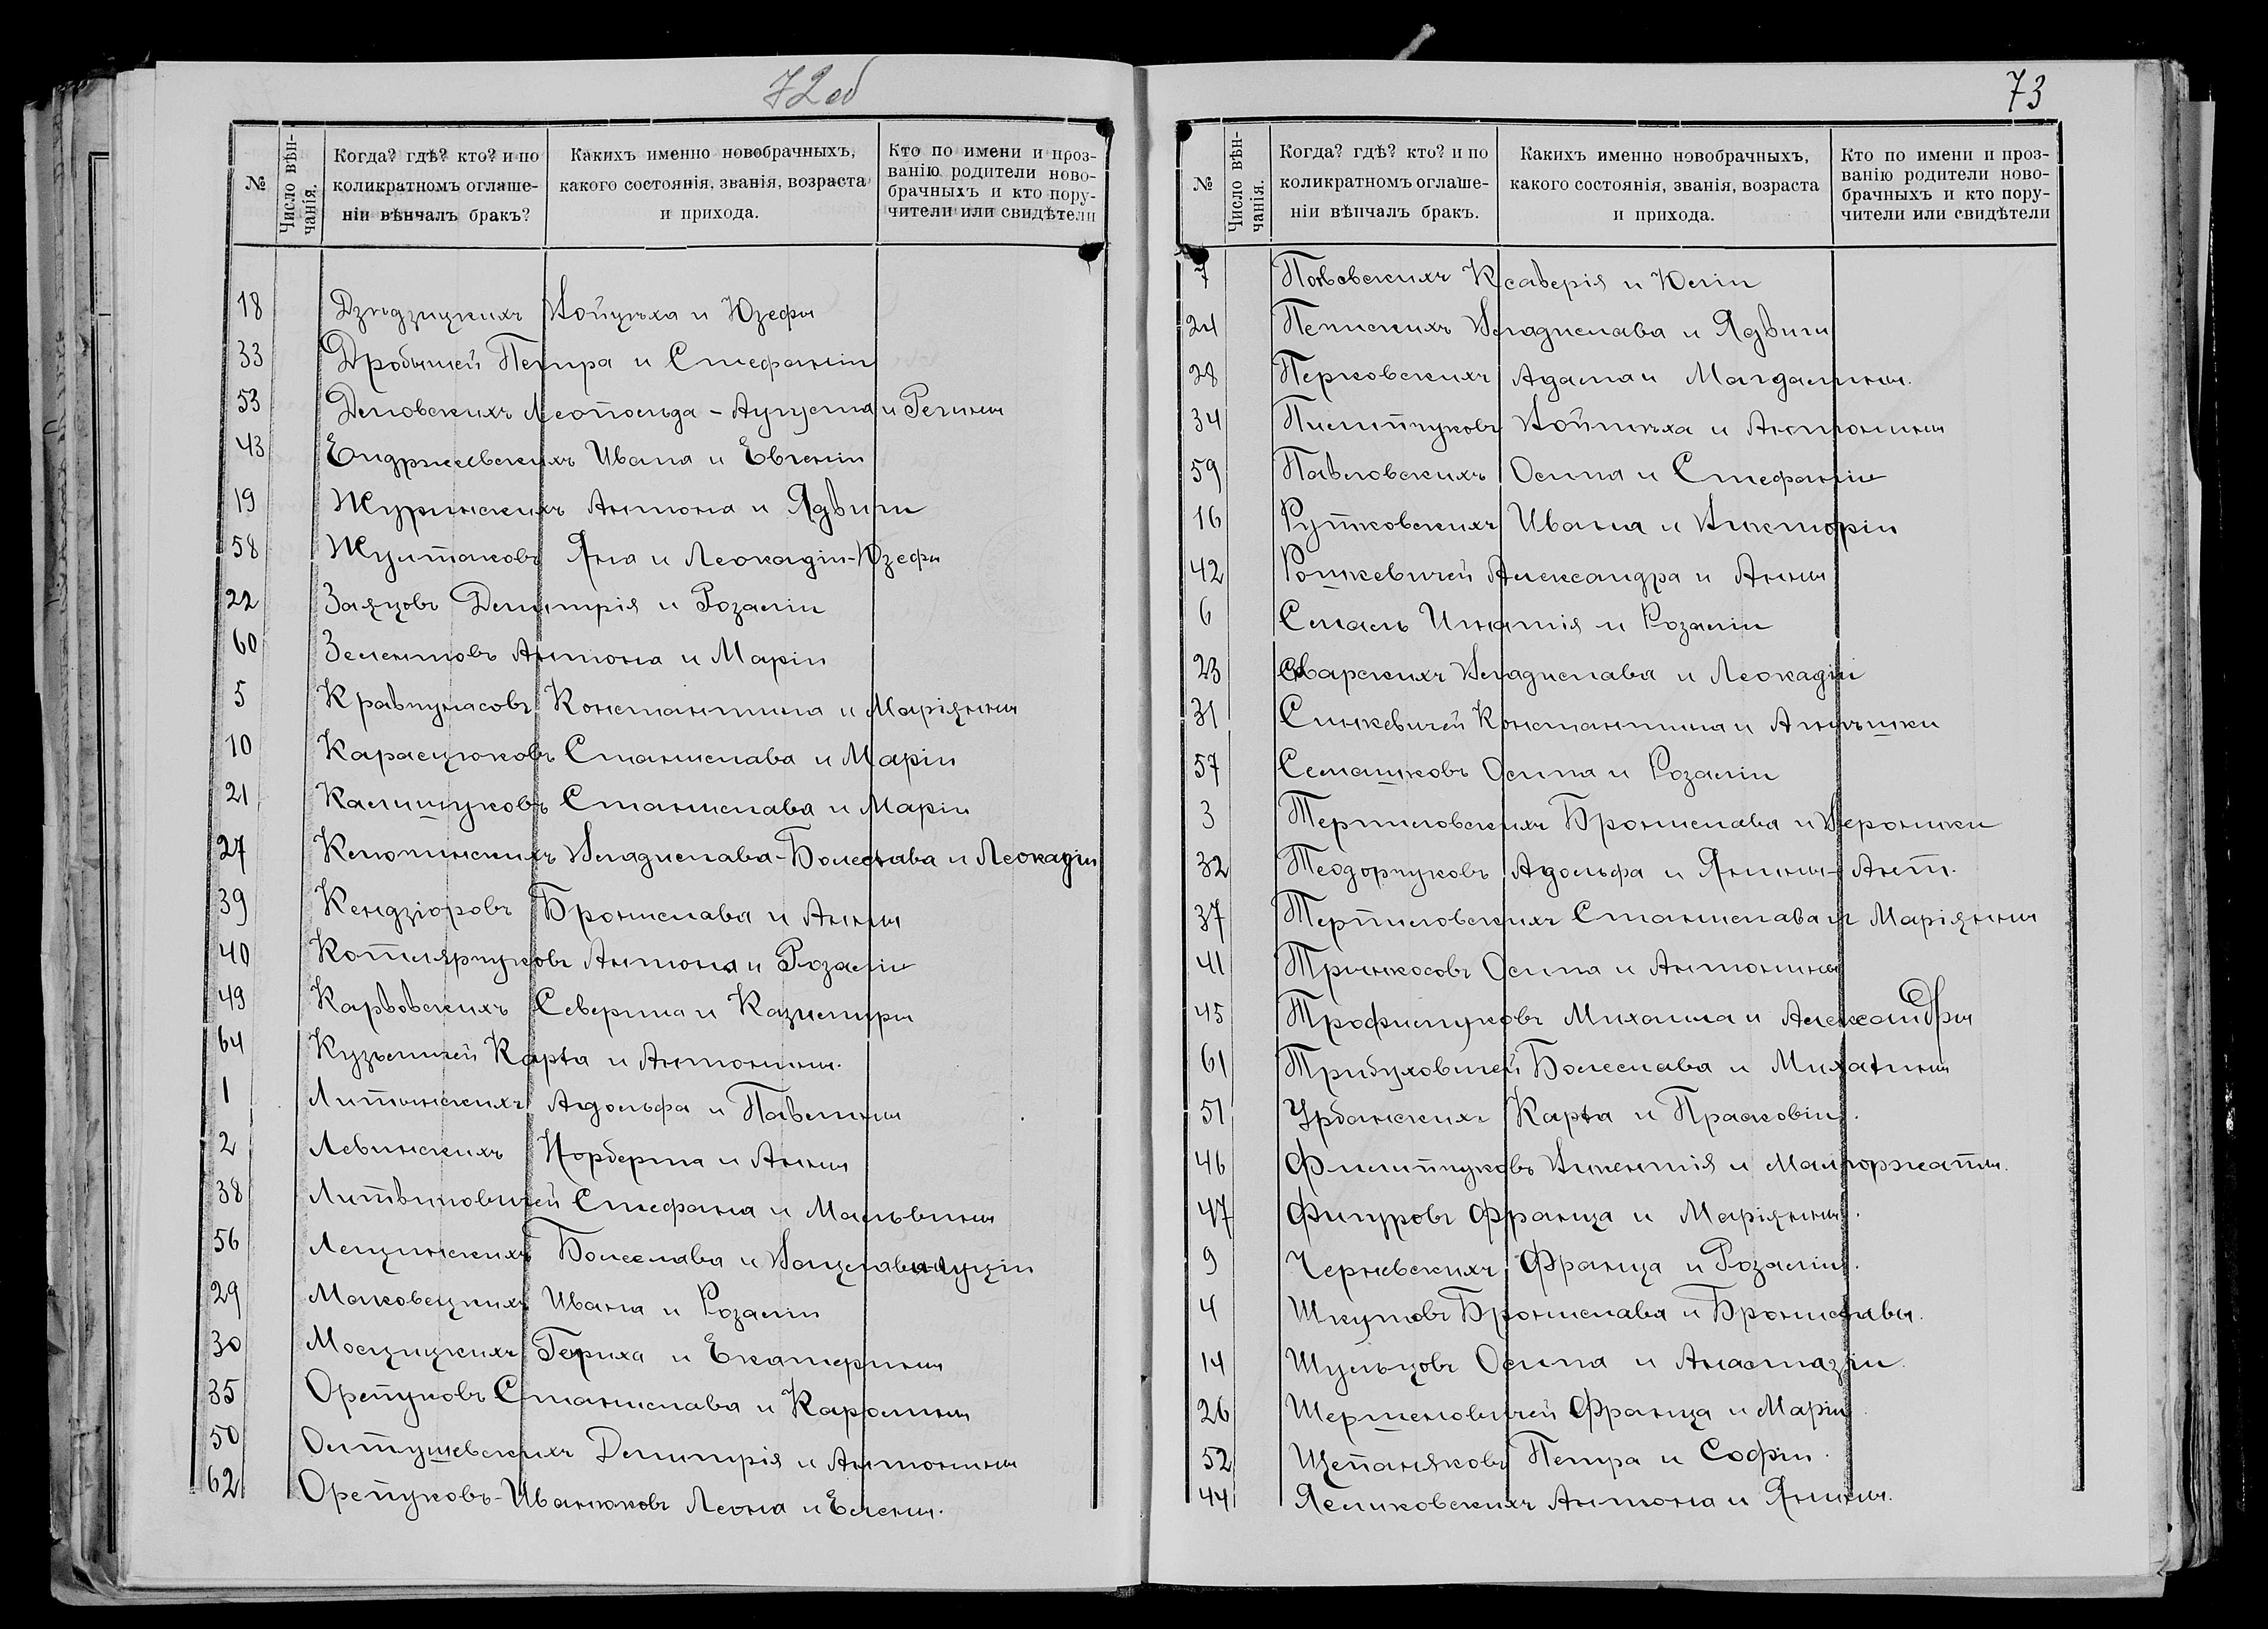 72 об
№
Число вѣн-
чанія.
Когда? гдѣ? кто? и по
коликратномъ оглаше-
ніи вѣнчалъ бракъ?
Какихъ именно новобрачныхъ,
какого состоянія, званія, возраста
и прихода.
Кто по имени и проз-
ванію родители ново-
брачныхъ и кто пору-
чители или свидѣтели
18 Дзѣдзицкихъ Войцѣха и Юзефы
33 Дробышей Петра и Стефаніи
53 Деловскихъ Леопольда-Августа и Регины
43 Ендржеевскихъ Ивана и Евгеніи
19 Журинскихъ Антона и Ядвиги
58 Жултаковъ Яна и Леокадіи-Юзефы
22 Заяцовъ Дмитрія и Розаліи
60 Зелентовъ Антона и Маріи
5 Кравчунасовъ Константина и Маріянны
10 Карасцюковъ Станислава и Маріи
21 Калишуковъ Станислава и Маріи
27 Клопинскихъ Владислава-Болеслава и Леокадіи
39 Кендзіоровъ Бронислава и Анны
40 Котлярчуковъ Антона и Розаліи
49 Карвовскихъ Северина и Казимиры
64 Кузьмичей Карла и Антонины.
1 Литынскихъ Адольфа и Павелины
2 Левинскихъ Норберта и Анны
38 Литвиновичей Стефана и Мальвины
56 Лещинскихъ Болеслава и Вацлавы-Луціи
29 Маковецкихъ Ивана и Розаліи
30 Мосцицкихъ Гериха и Екатерины
35 Орепуковъ Станислава и Каролины
50 Олтушевскихъ Дмитрія и Антонины
62 Орепуковъ-Иванюковъ Леона и Елены.
73
№
Число вѣн-
чанія.
Когда? гдѣ? кто? и по
коликратномъ оглаше-
ніи вѣнчалъ бракъ.
Какихъ именно новобрачныхъ,
какого состоянія, званія, возраста
и прихода.
Кто по имени и проз-
ванію родители ново-
брачныхъ и кто пору-
чители или свидѣтели
7 Ксаверія и Юліи
24 Владислава и Ядвиги
28 Перковскихъ Адама и Магдалины.
34 Пилипчуковъ Войтѣха и Антонины
59 Павловскихъ Осипа и Стефаніи
16 Рутковскихъ Ивана и Викторіи
42 Рошкевичей Александра и Анны
6 Смаль Игнатія и Розаліи
23 Сварскихъ Владислава и Леокадіи
31 Синкевичей Константина и Анѣшки
57 Семашковъ Осипа и Розаліи
3 Терпиловскихъ Бронислава и Вероники
32 Теодорчуковъ Адольфа и Янины-Ант.
37 Терпиловскихъ Станислава и Маріянны
41 Тринкосовъ Осипа и Антонины
45 Трофимуковъ Михаила и Александры
61 Трибуховичей Болеслава и Михалины
51 Урбанскихъ Карла и Прасковіи.
46 Филипчуковъ Викентія и Малгоржаты.
47 Фигуровъ Франца и Маріянны.
9 Черневскихъ Франца и Розаліи.
4 Шкуповъ Бронислава и Брониславы.
14 Шульцовъ Осипа и Анастазіи.
26 Шершеновичей Франца и Маріи.
52 Щепаняковъ Петра и Софіи.
44 Яеликовскихъ Антона и Янины.